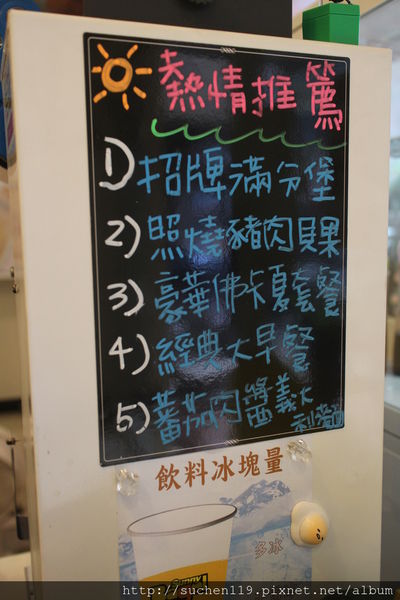 熱情推篤
1)招牌滿分堡
2)照燒豬肉貝果
3)豪華佛卡夏套餐
4)經典大早餐
5)蕃茄肉醬義大利麵
飲料冰塊量
多冰
SUNNY
http://suchen119.pixnet.net/album